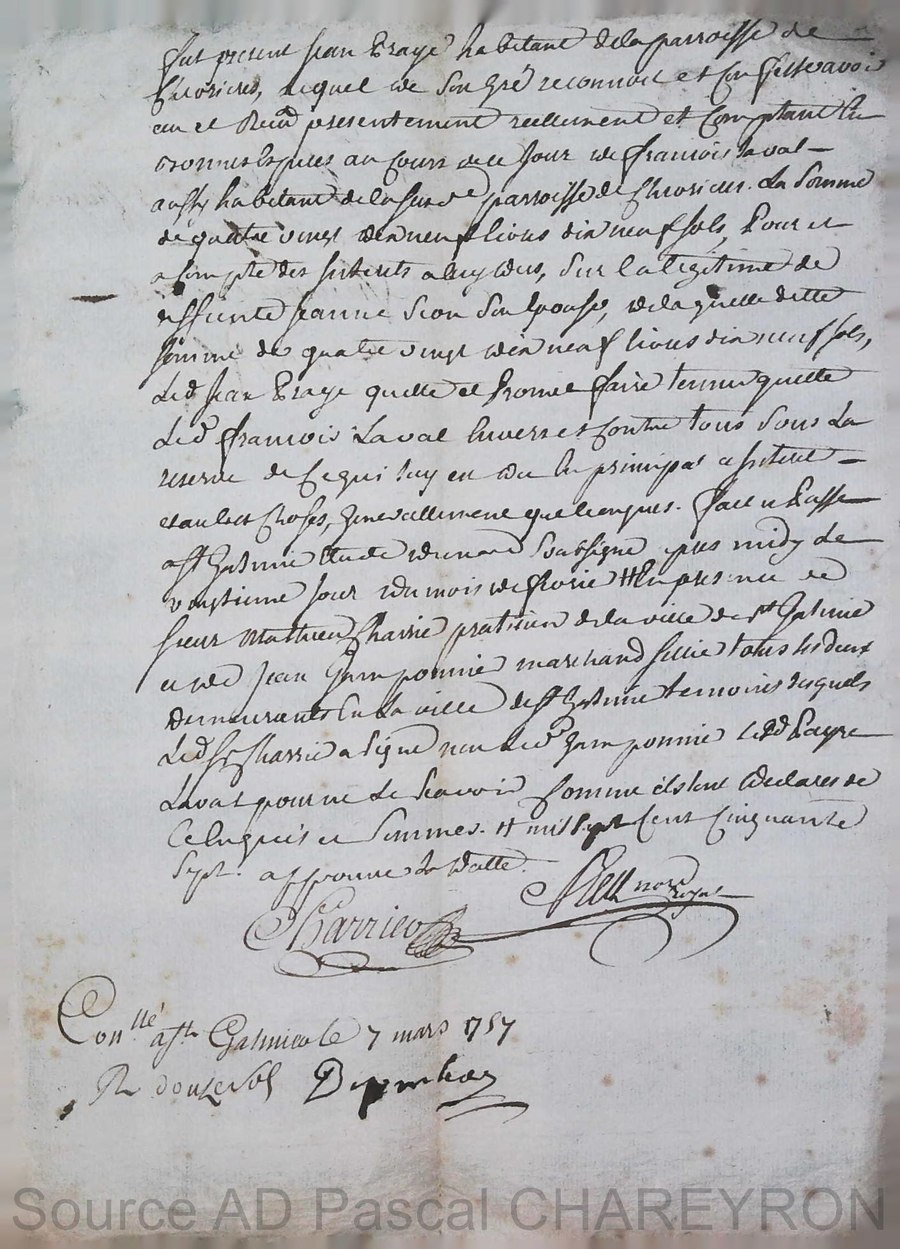 fut present Jean Praye habitant de la parroisse de
Chevrieres, lequel de son gré reconnoit et confesse avoir
eu et Receu presentement reellement et comptant En
bonnes Especes au Cours de ce Jour de françois Laval
aussy habitant de la susde parroisse de Chevrieres. La Somme
de quatre vingt dix neuf livres dix neuf sols, Pour et
a Compte des Interets a luy deus, Sur la légitime de
deffunte Jeanne Son Epouse, de laquelle ditte
somme de quatre vingt dix neuf livres dix neuf sols,
Led Jean Praye quitte et Promet faire tenir quitte
Led françois Laval Envers et Contre tous Sous La
reserve de Ce qui luy en du En principal et Interet
et autres Choses, generallement quelconques. fait et Passé
a st Galmier Etude du no.re Soussigné apres midy le
vingtieme Jour du mois de fevrier # En presence de
sieur Mathieu Charrie praticien de la ville de st Galmier
et de Jean Gamponnie marchand sellier tous les deux
demeurants En la ville de st Galmier temoins desquels
Led sr Charrie a signé non led Gamponnie lesd Praye
Laval pour ne le sçavoir Comme ils l'ont declarés de
Ce Enquis et Sommés. # mil Sept Cent Cinquante
Sept. approuvé la datte.
Charrie
nore royal
Conllé a st Galmier le 7 mars 1757
R douze sols
Source AD Pascal CHAREYRON